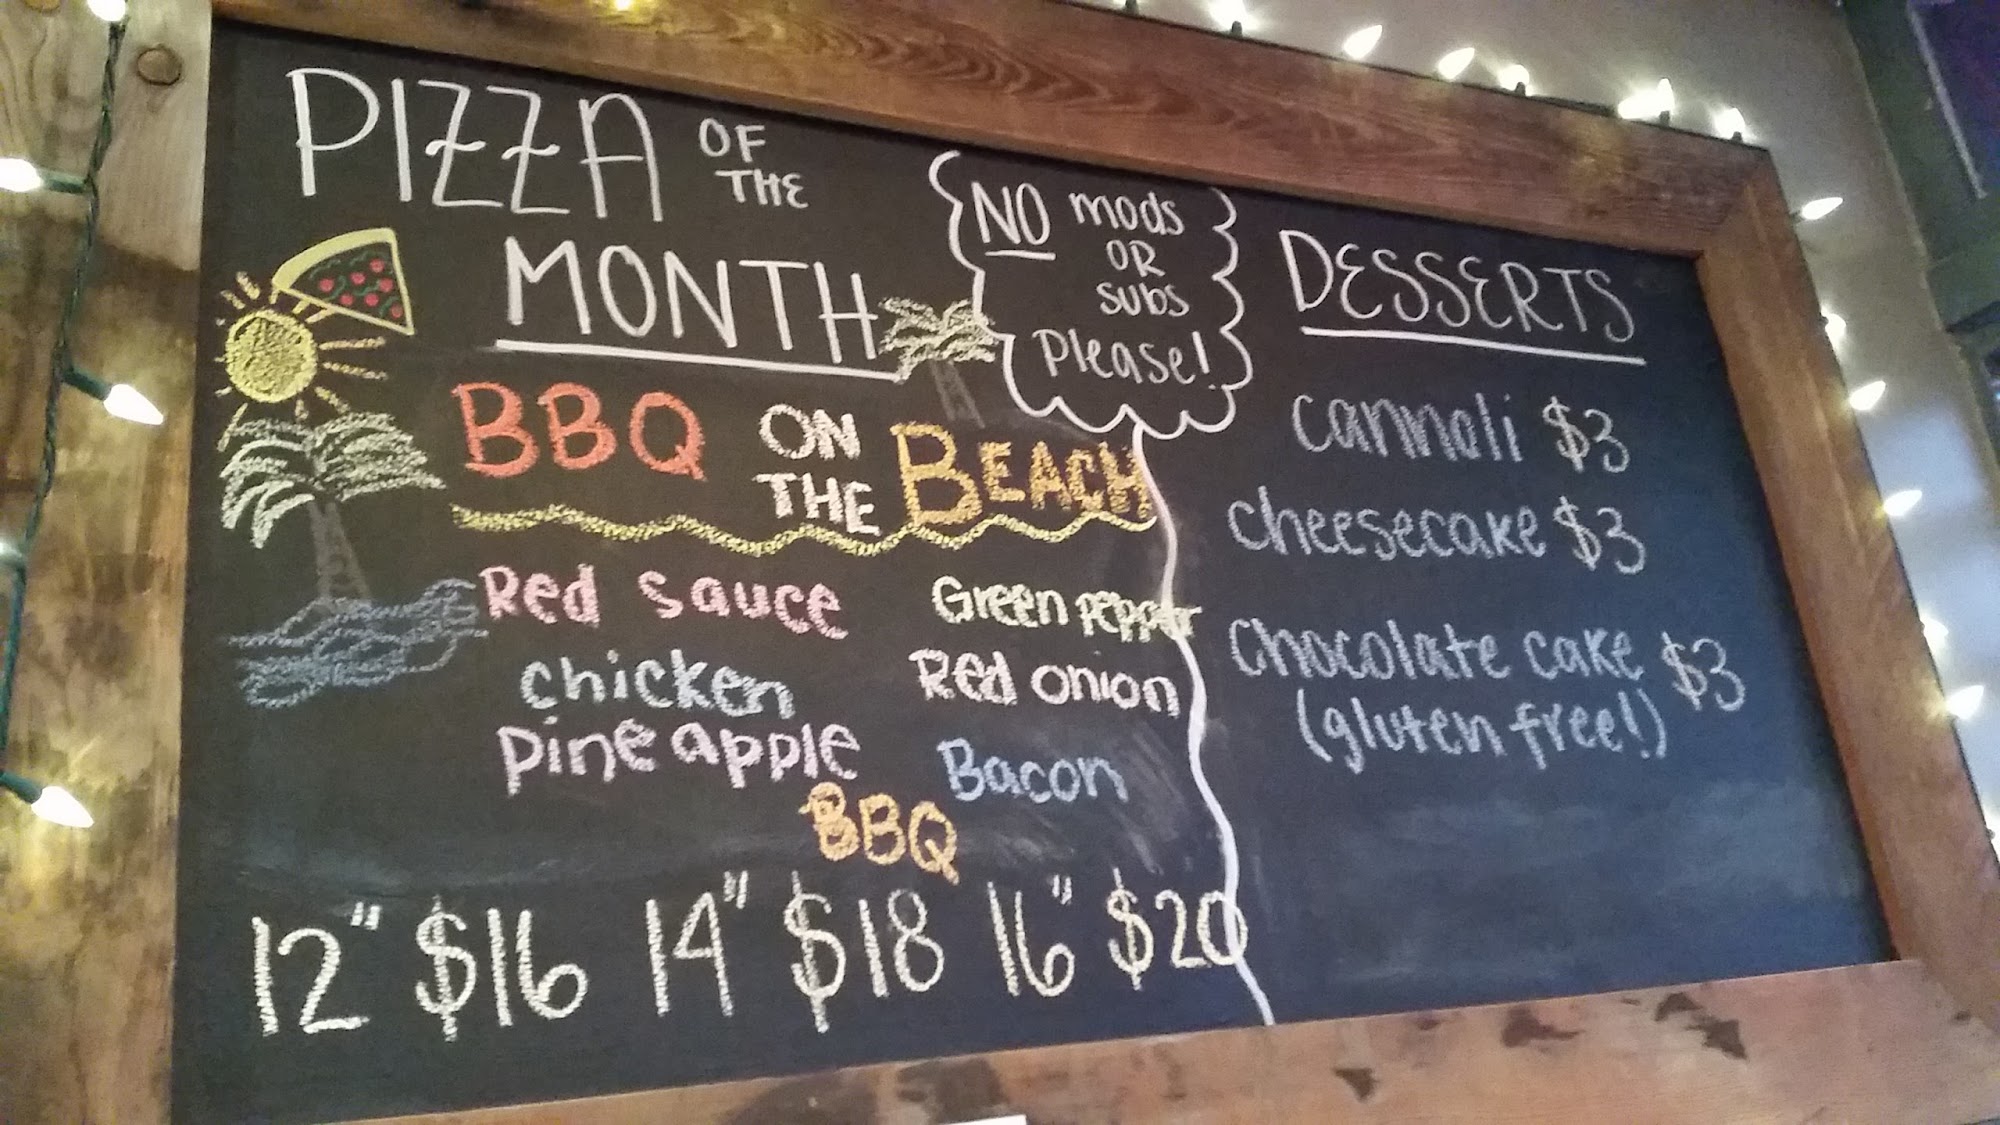 PIZZA OF THE
MONTH
NO mods
OR
subs
Please!
BBQ ON THE BEACH
Red Sauce
Chicken
pineapple
Green pepper
Red onion
Bacon
BBQ
12" $16 14" $18 16" $20
DESSERTS
cannoli $3
cheesecake $3
chocolate cake $3
(gluten free!)